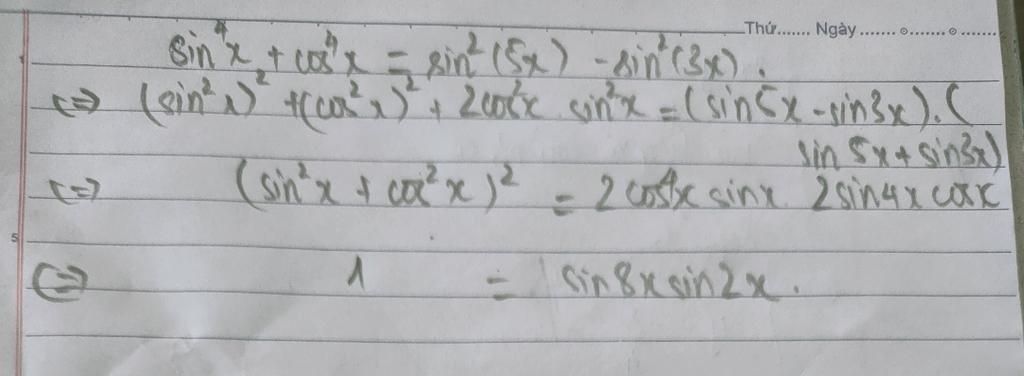 Thứ....... Ngày.......
sin⁴x + cos⁴x = sin²(5x) - sin²(3x).
<=> (sin²x)² + (cos²x)² + 2cos²x sin²x = (sin5x - sin3x).(
sin 5x + sin3x)
<=> (sin²x + cos²x)² = 2cos4x sinx 2sin4x cosx
5
<=> 1 = sin8x sin2x.